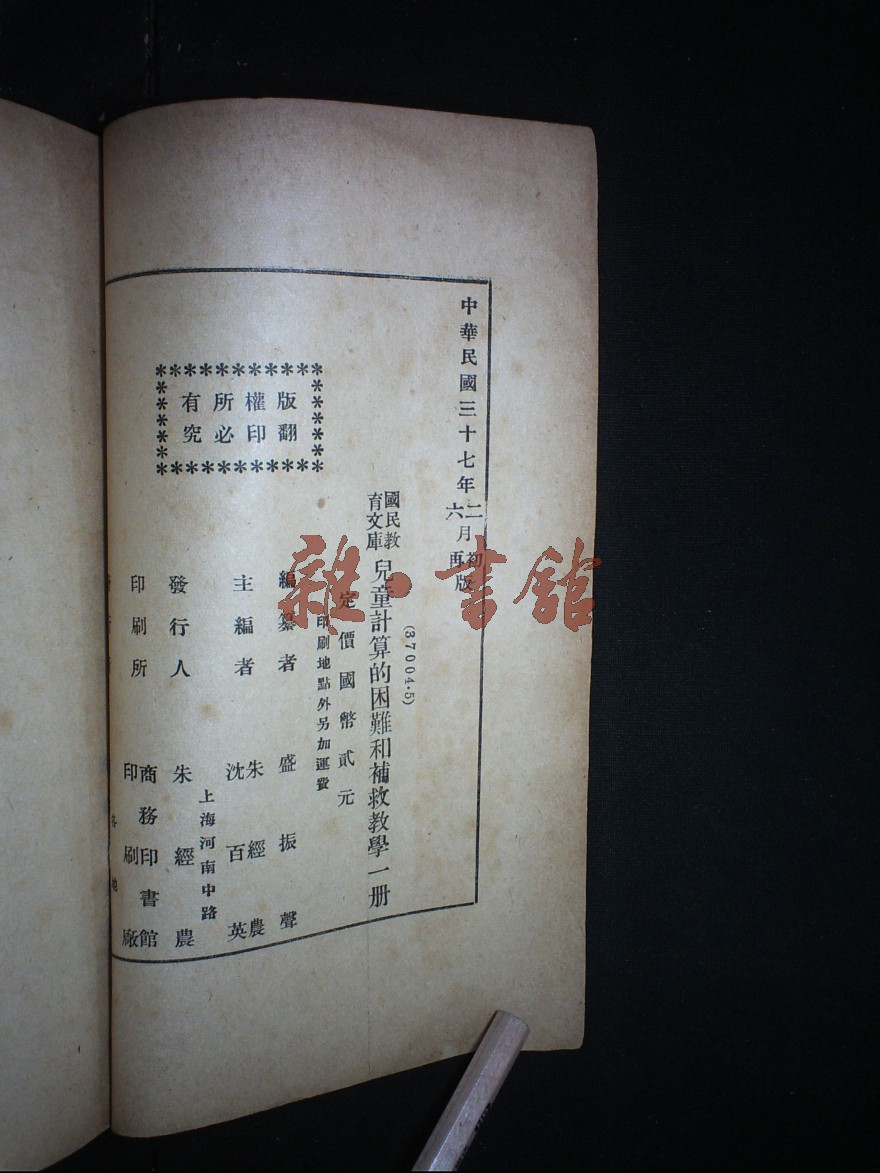 中華民國三十七年二月初版
六月再版
(37004·5)
國民教育文庫
兒童計算的困難和補救教學一册
定價國幣貳元
印刷地點外另加運費
編纂者 盛振聲
主編者 朱經農
沈百英
發行人 朱經農
上海河南中路
印刷所 商務印書館
印刷廠
各地
版權所有
翻印必究
雜·書館